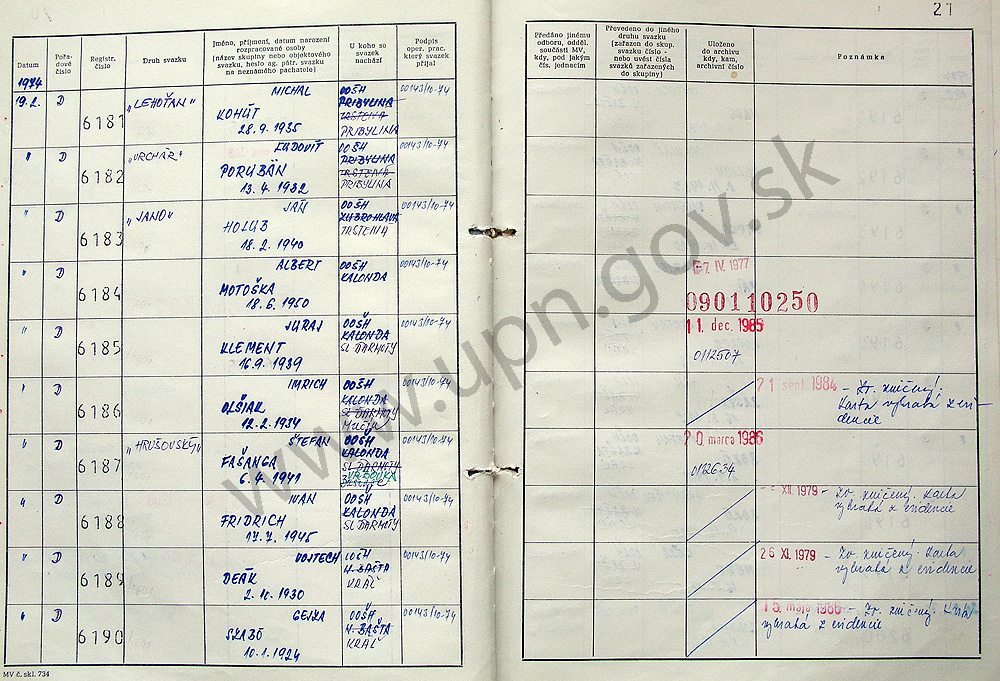 21
Datum
Pořa-
dové
číslo
Registr.
číslo
Druh svazku
Jméno, příjmení, datum narození
rozpracované osoby
(název skupiny nebo objektového
svazku, heslo ag. pátr. svazku
na neznámého pachatele)
U koho se
svazek
nachází
Podpis
oper. prac.
který svazek
přijal
Předáno jinému
odboru, odděl.
součásti MV,
kdy, pod jakým
čís. jednacím
Převedeno do jiného
druhu svazku
(zařazen do skup.
svazku číslo -
nebo uvést čísla
svazků zařazených
do skupiny)
Uloženo
do archivu
kdy, kam,
archivní číslo
Poznámka
1974
19.2. D 6181 „LEHOŤAN" MICHAL
KOHÚT
28.9. 1935
OOŠH
PRIBYLINA
TRSTENA
PRIBYLINA
00143/10-74
" D 6182 „VRCHÁR" ĽUDOVÍT
PORUBÄN
13.4. 1932
OOŠH
PRIBYLINA
TRSTENÁ
PRIBYLINA
00143/10-74
" D 6183 „JANO" JÁN
HOLUB
18.2. 1940
OOŠH
ZUBROHLAVA
TRSTENA
00143/10-74
" D 6184 ALBERT
MOTOŠKA
18.6. 1950
OOŠH
KALONDA
00143/10-74
-7. IV. 1977
090110250
" D 6185 JURAJ
KLEMENT
16.9. 1939
OOŠH
KALONDA
SL ĎARMOTY
00143/10-74
11. dec. 1985
0112507
" D 6186 IMRICH
OLŠIAK
12.2. 1934
OOŠH
KALONDA
SL ĎARMOTY
00143/10-74
21 sept 1984 - Zv. zničený.
Karta vybratá z evi-
dencie
" D 6187 „HRUŠOVSKÝ" ŠTEFAN
FAŠANGA
6.4. 1941
OOŠH
KALONDA
SL ĎARMOTY
00143/10-74
20 marca 1986
0132634
" D 6188 IVAN
FRIDRICH
17.7. 1945
OOŠH
KALONDA
SL ĎARMOTY
00143/10-74
XII 1979 - Zv. zničený. Karta
vybratá z evidencie
" D 6189 VOJTECH
DEÁK
2.10. 1930
OOŠH
H. BAŠTA
KRÁĽ
00143/10-74
26 XI. 1979 - Zv. zničený. Karta
vybratá z evidencie
" D 6190 GEJZA
SZABÓ
10.1. 1924
OOŠH
H. BAŠTA
KRÁĽ
00143/10-74
15. mája 1986 - Zv. zničený. Karta
vybratá z evidencie
MV č. skl. 734
www.upn.gov.sk